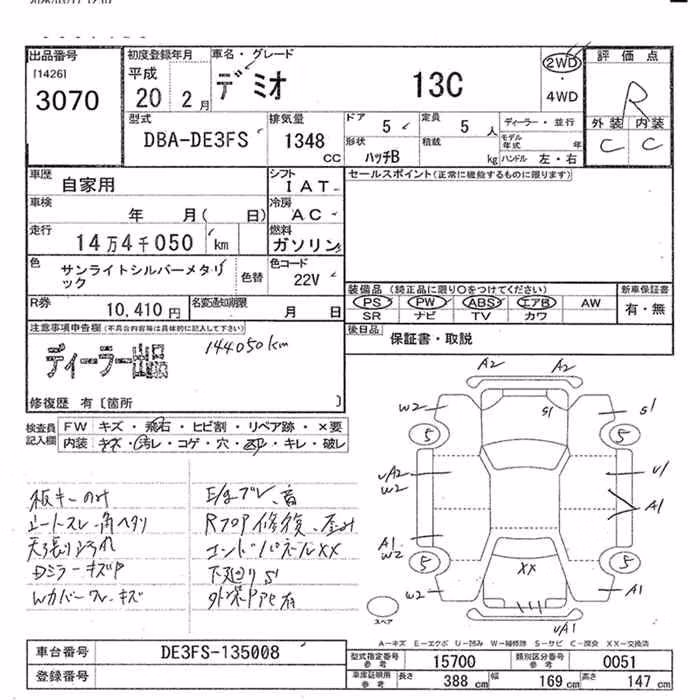 出品番号
[1426]
3070
初度登録年月
平成
20 2月
車名・グレード
デミオ 13C
2WD
4WD
評価点
R
外装 内装
C C
型式
DBA-DE3FS
排気量
1348
CC
ドア 5
定員 5人
形状
ハッチB
積載
kg
ディーラー・並行
モデル年式 年
ハンドル 左・右
車歴
自家用
シフト
IAT
セールスポイント(正常に機能するものに限ります)
車検
年 月( 日)
冷房
AC
走行
14万4千050 km
燃料
ガソリン
色
サンライトシルバーメタリック
色替
色コード
22V
装備品(純正品に限り○をつけてください)
PS PW ABS エアB AW
SR ナビ TV カワ
新車保証書
有・無
R券
10,410円
名変通知期限
月 日
後日品
保証書・取説
注意事項申告欄(不具合内容等は具体的に記入して下さい)
ディーラー出品
144050km
修復歴 有[箇所 ]
検査員記入欄
FW キズ・飛石・ヒビ割・リペア跡・×要
内装 キズ・汚レ・コゲ・穴・・キレ・破レ
板キーのみ
シートスレ
天張り
Dミラーキズ
Wカバー キズ
音
Rフロア修復、歪み
エンドパネルXX
下廻りS
A2 A2
W2 S1 S1
5 5
UA2
W2
U1
A1
A1
W2
5 5
XX
W2 A1
UA1
スペア
A-キズ E-エクボ U-凹み W-補修跡 S-サビ C-腐食 XX-交換済
車台番号
DE3FS-135008
登録番号
型式指定番号
参考
15700
類別区分番号
参考
0051
車庫証明用
参考
長さ 388cm 幅 169cm 高さ 147cm